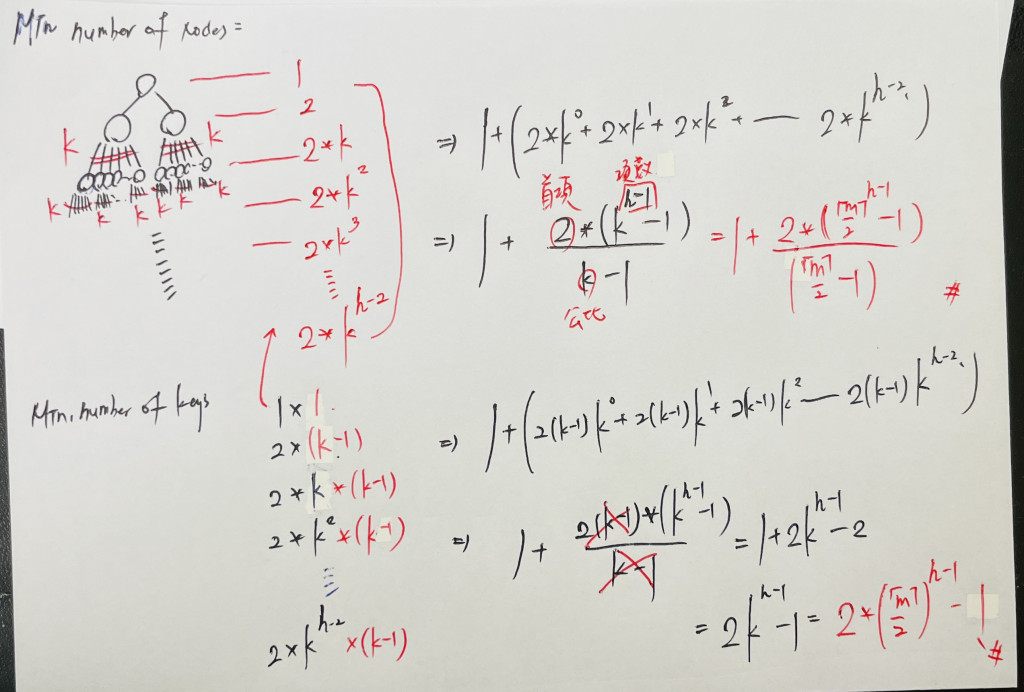 Min number of nodes =
1
2
k k 2*k
k k k k k 2*k²
2*k³
2*k^{h-2}
⇒ 1+(2*k⁰+2×k¹+2×k²+ — 2*k^{h-2})
首項 項數
⇒ 1 + \frac{2*(k^{h-1}-1)}{k-1} = 1 + \frac{2*(\frac{⌈m⌉}{2}^{h-1}-1)}{(\frac{⌈m⌉}{2}-1)} #
公比
Min. number of keys
1 × 1
2×(k-1)
2*k*(k-1)
2*k²*(k-1)
2×k^{h-2}×(k-1)
⇒ 1+(2(k-1)k⁰+2(k-1)k¹+2(k-1)k² — 2(k-1)k^{h-2})
⇒ 1 + \frac{2(k-1)*(k^{h-1}-1)}{k-1} = 1+2k^{h-1}-2
= 2k^{h-1}-1 = 2*(\frac{⌈m⌉}{2})^{h-1}-1 #